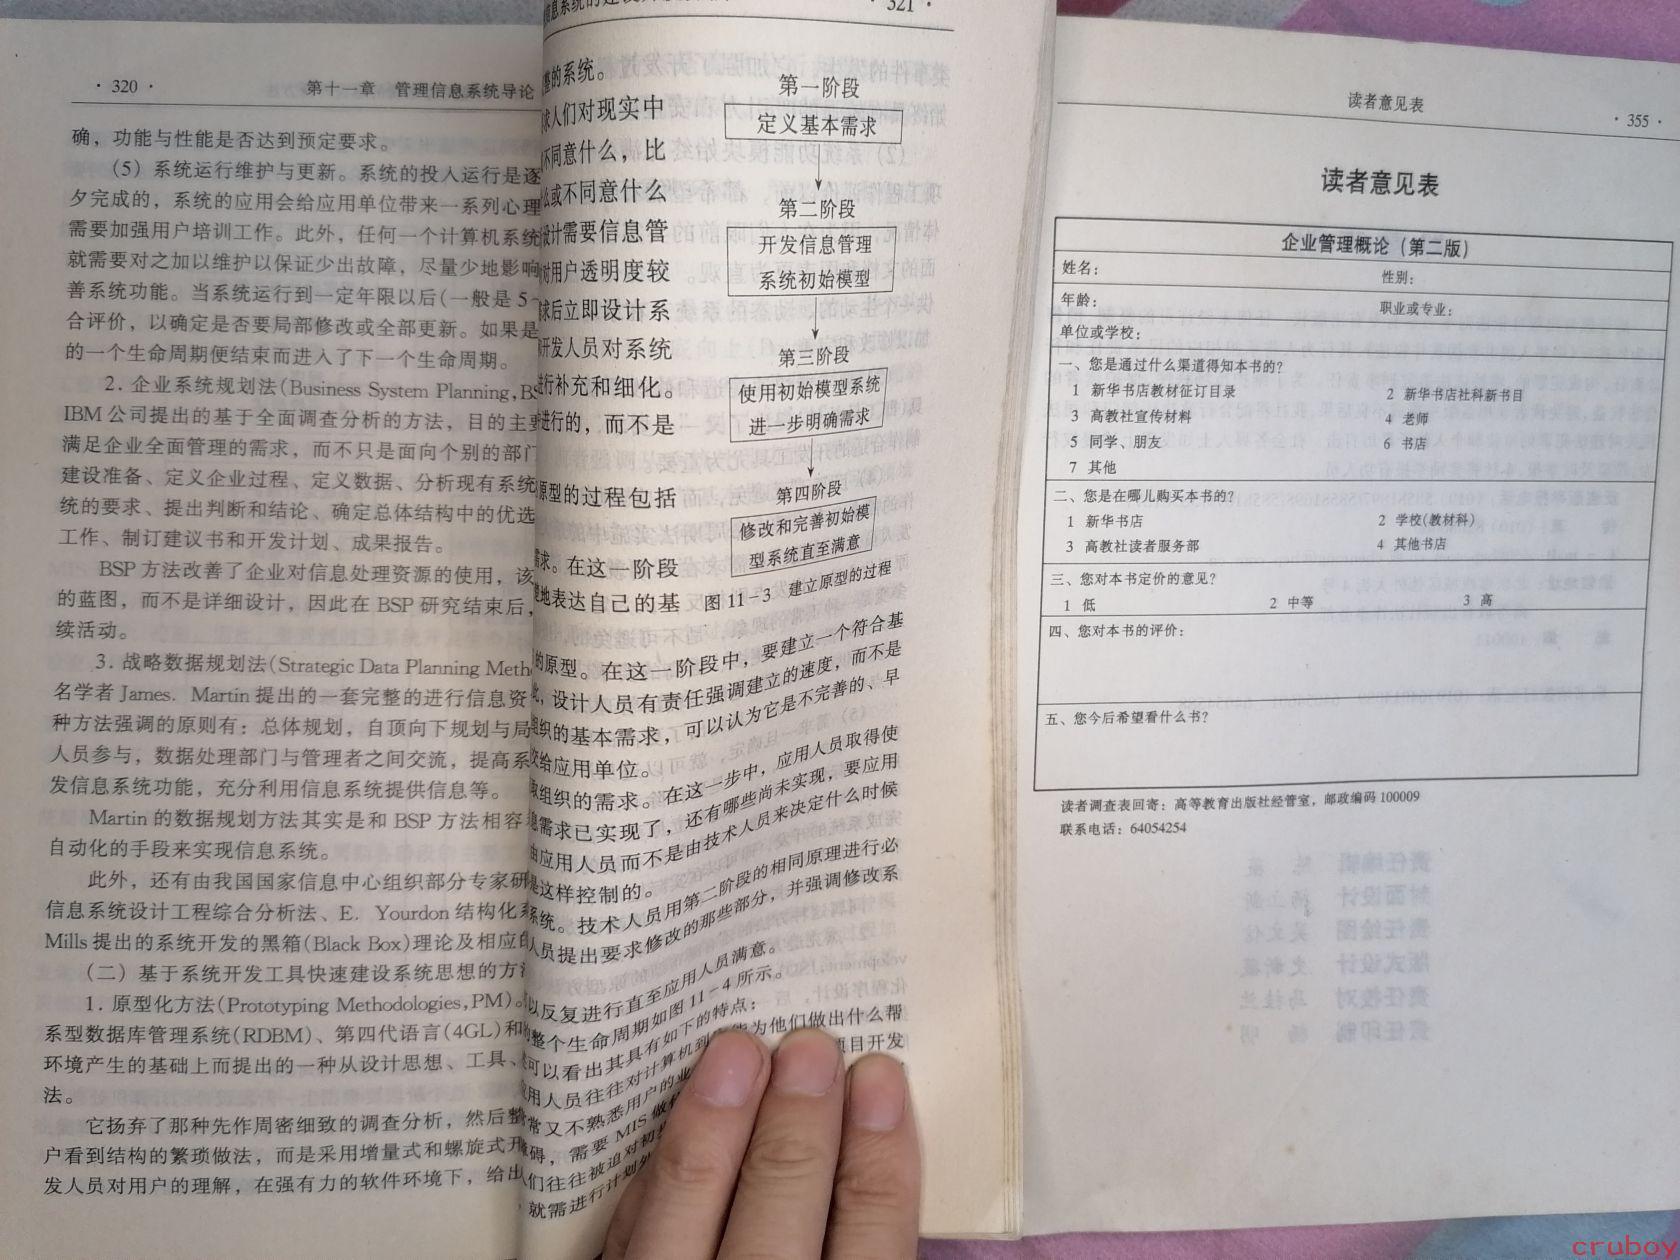 · 320 ·
第十一章 管理信息系统导论
确，功能与性能是否达到预定要求。
(5) 系统运行维护与更新。系统的投入运行是逐
夕完成的，系统的应用会给应用单位带来一系列心理
需要加强用户培训工作。此外，任何一个计算机系统
就需要对之加以维护以保证少出故障，尽量少地影响
善系统功能。当系统运行到一定年限以后(一般是 5
合评价，以确定是否要局部修改或全部更新。如果是
的一个生命周期便结束而进入了下一个生命周期。
2. 企业系统规划法(Business System Planning,
IBM 公司提出的基于全面调查分析的方法，目的主要
满足企业全面管理的需求，而不只是面向个别的部门
建设准备、定义企业过程、定义数据、分析现有系统
统的要求、提出判断和结论、确定总体结构中的优选
工作、制订建议书和开发计划、成果报告。
BSP 方法改善了企业对信息处理资源的使用，该
的蓝图，而不是详细设计，因此在 BSP 研究结束后，
续活动。
3. 战略数据规划法(Strategic Data Planning
名学者 James. Martin 提出的一套完整的进行信息资
种方法强调的原则有：总体规划，自顶向下规划与局
人员参与，数据处理部门与管理者之间交流，提高系
发信息系统功能，充分利用信息系统提供信息等。
Martin 的数据规划方法其实是和 BSP 方法相容
自动化的手段来实现信息系统。
此外，还有由我国国家信息中心组织部分专家研
信息系统设计工程综合分析法、E. Yourdon 结构化系
Mills 提出的系统开发的黑箱(Black Box)理论及相应的
(二) 基于系统开发工具快速建设系统思想的方法
1. 原型化方法(Prototyping Methodologies,PM)。
系型数据库管理系统(RDBM)、第四代语言(4GL)和
环境产生的基础上而提出的一种从设计思想、工具、
法。
它扬弃了那种先作周密细致的调查分析，然后整
户看到结构的繁琐做法，而是采用增量式和螺旋式开
发人员对用户的理解，在强有力的软件环境下，给出
· 321 ·
整的系统。
求人们对现实中
不同意什么，比
么或不同意什么
设计需要信息管
对用户透明度较
求后立即设计系
开发人员对系统
进行补充和细化。
进行的，而不是
原型的过程包括
需求。在这一阶段
地表达自己的基
第一阶段
定义基本需求
第二阶段
开发信息管理
系统初始模型
第三阶段
使用初始模型系统
进一步明确需求
第四阶段
修改和完善初始模
型系统直至满意
图 11-3 建立原型的过程
的原型。在这一阶段中，要建立一个符合基
此，设计人员有责任强调建立的速度，而不是
组织的基本需求，可以认为它是不完善的、早
给应用单位。
取组织的需求。在这一步中，应用人员取得使
需求已实现了，还有哪些尚未实现，要应用
由应用人员而不是由技术人员来决定什么时候
是这样控制的。
系统。技术人员用第二阶段的相同原理进行必
人员提出要求修改的那些部分，并强调修改系
以反复进行直至应用人员满意。
整个生命周期如图 11-4 所示。
可以看出其具有如下的特点：
用人员往往对计算机到 为他们做出什么帮
常又不熟悉用户的业 项目开发
碍，需要 MIS 做
们往往被迫对初
就需进行计划
读者意见表
· 355 ·
读者意见表
企业管理概论（第二版）
姓名： 性别：
年龄： 职业或专业：
单位或学校：
一、您是通过什么渠道得知本书的？
1 新华书店教材征订目录 2 新华书店社科新书目
3 高教社宣传材料 4 老师
5 同学、朋友 6 书店
7 其他
二、您是在哪儿购买本书的？
1 新华书店 2 学校(教材科)
3 高教社读者服务部 4 其他书店
三、您对本书定价的意见？
1 低 2 中等 3 高
四、您对本书的评价：
五、您今后希望看什么书？
读者调查表回寄：高等教育出版社经管室，邮政编码 100009
联系电话：64054254
cruboy